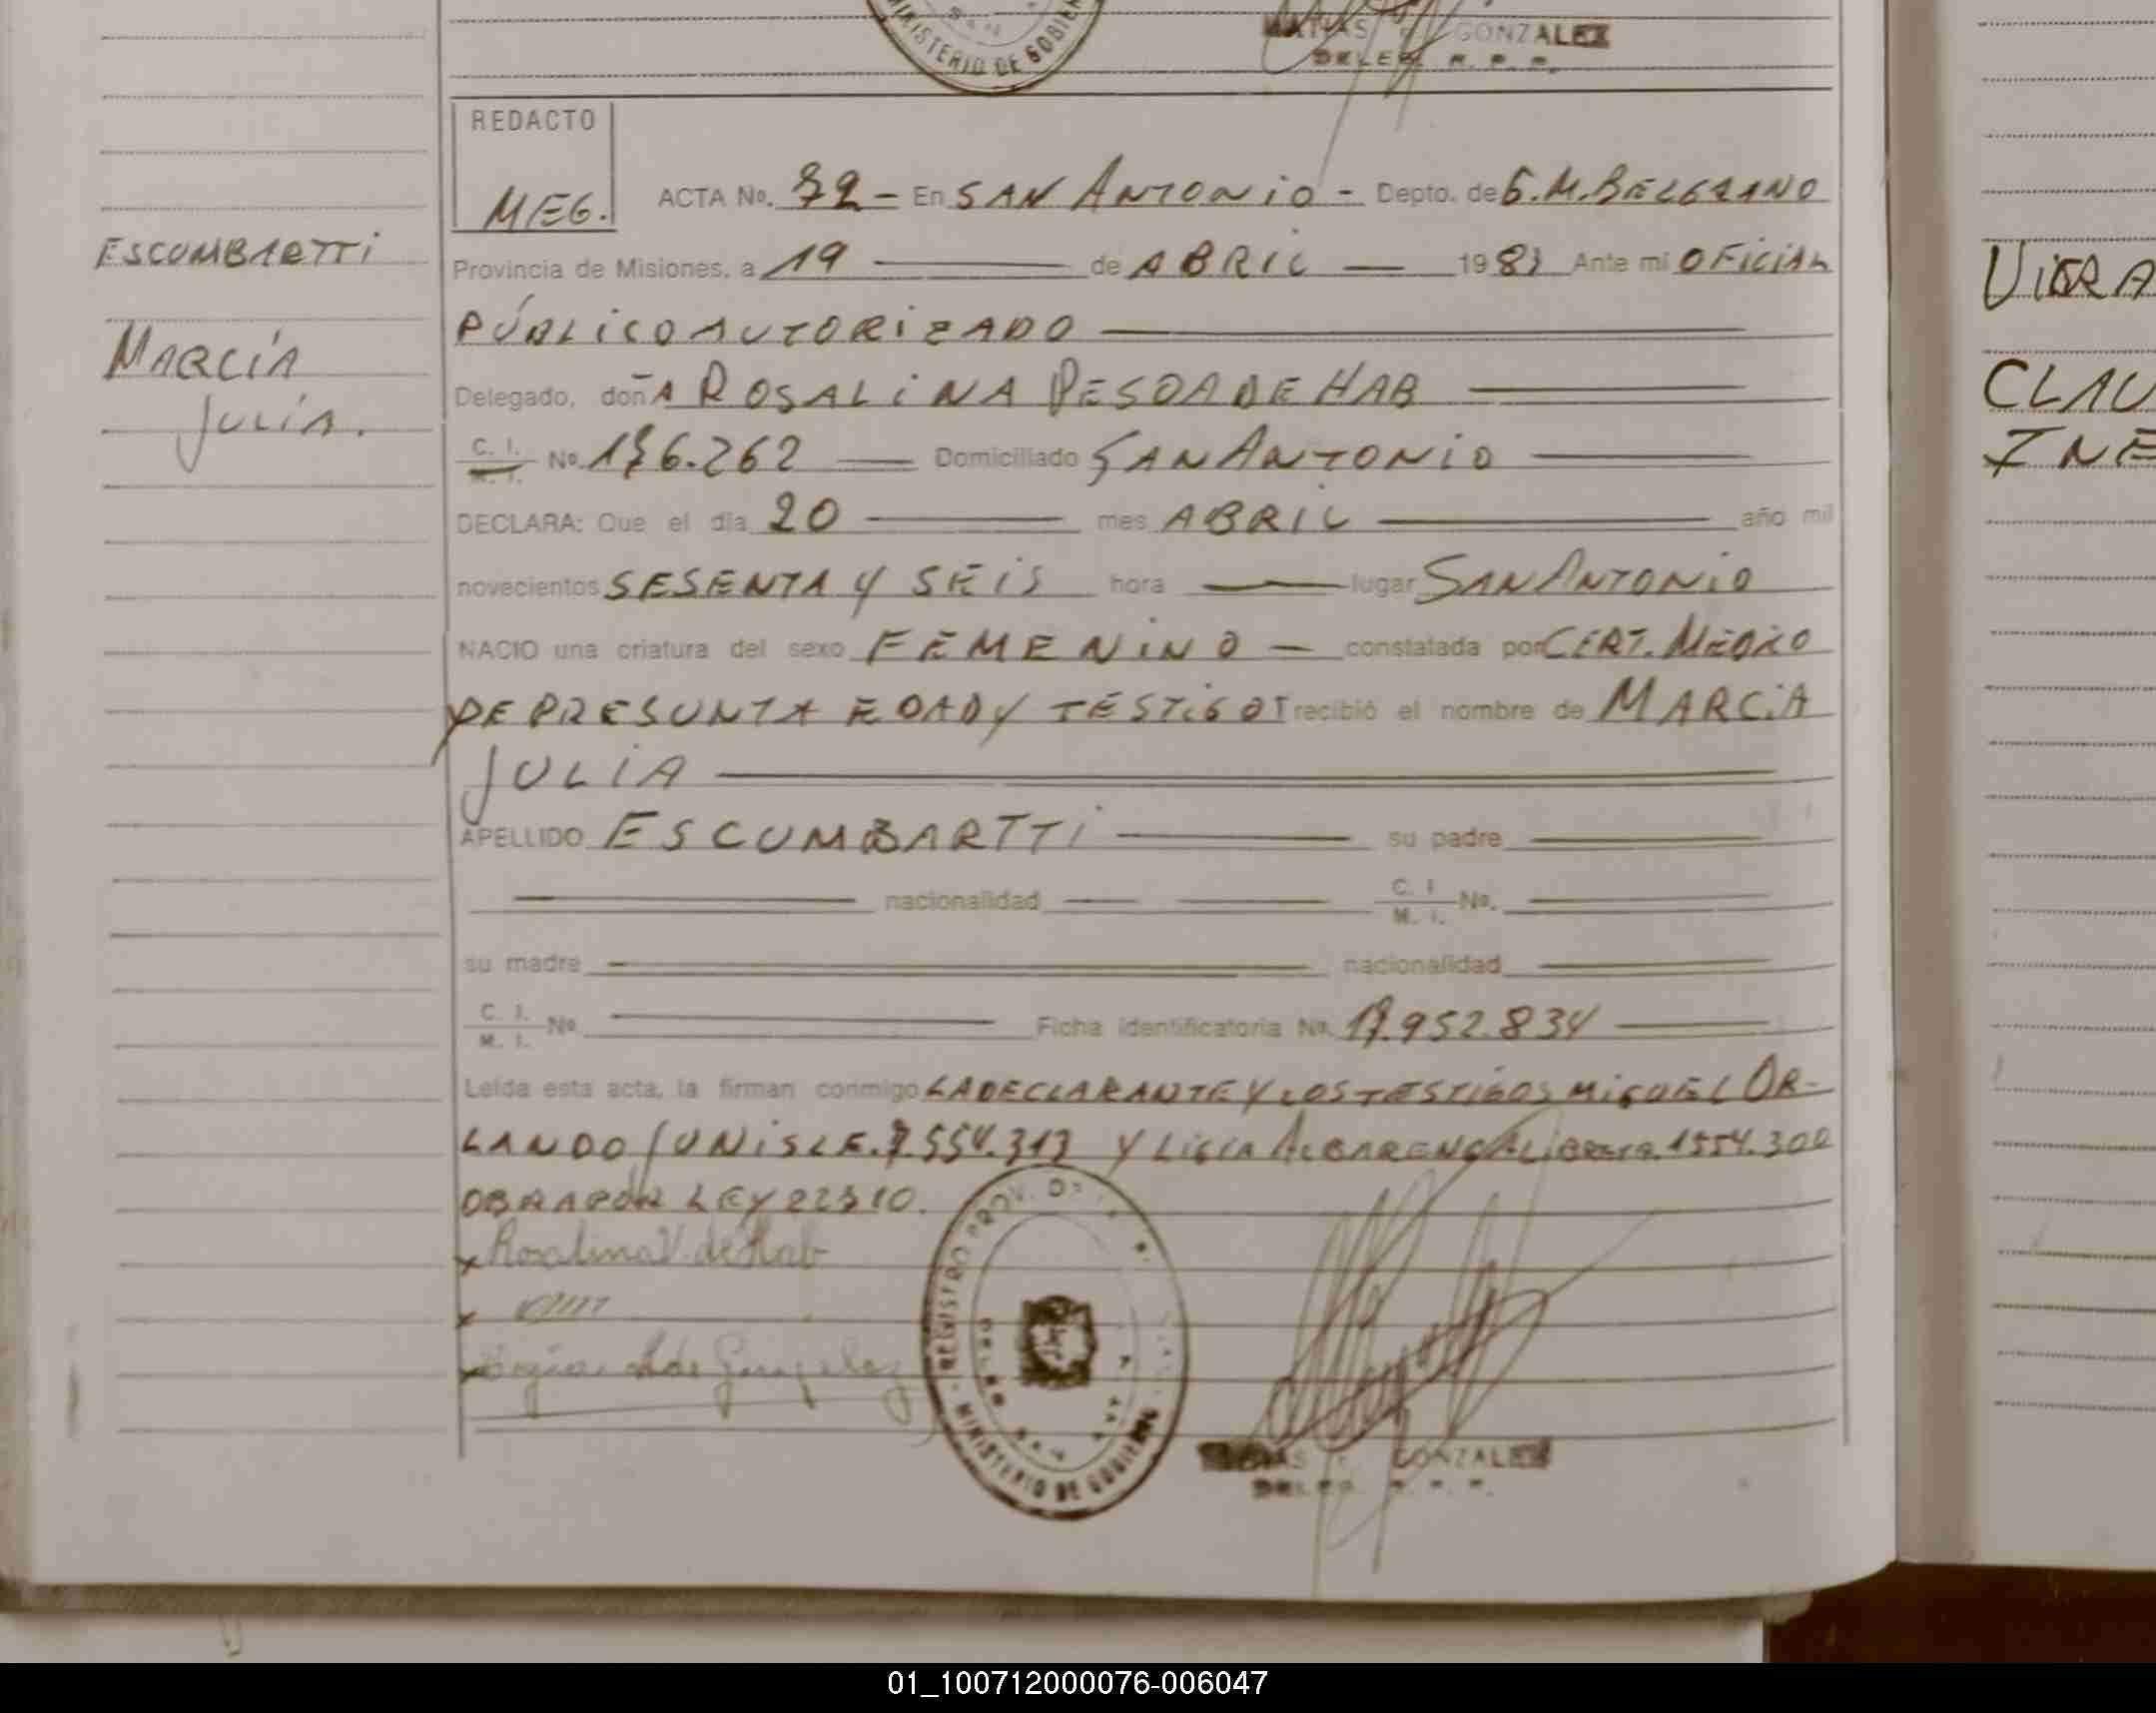 MINISTERIO DE GOBIER
GONZALEZ
DELEG. R. P. P.
REDACTO
MEG.
ACTA No. 72 - En SAN ANTONIO - Depto. de G.M.BELGRANO
Provincia de Misiones, a 19 de ABRIL 1983 Ante mi OFICIAL
PÚBLICO AUTORIZADO
Delegado, doñA ROSALINA PESOA DE HAB
C. I. M. I. No. 176.262 Domiciliado SAN ANTONIO
DECLARA: Que el dia 20 mes ABRIL año mil
novecientos SESENTA Y SEIS hora lugar SAN ANTONIO
NACIO una criatura del sexo FEMENINO - constatada por CERT. MEDICO
DE PRESUNTA EDAD Y TESTIGOS recibió el nombre de MARCIA
JULIA
APELLIDO ESCUMBARTTI su padre
nacionalidad C. I. M. I. No.
su madre nacionalidad
C. I. M. I. No Ficha identificatoria No. 17.952.834
Leida esta acta, la firman conmigo LA DECLARANTE Y LOS TESTIGOS MIGUEL OR-
LANDO JUNIS L.E. 7.554.313 Y LIGIA ALBARENGA 1554.300
OBRA POR LEY 22310.
Rosalina V. de Hab
A. de Gonzalez
REGISTRO PROV. DE
MINISTERIO DE GOBIERNO
GONZALEZ
DELEG.
ESCUMBARTTI
MARCÍA
JULIA.
VIERA
CLAU
INE
01_100712000076-006047